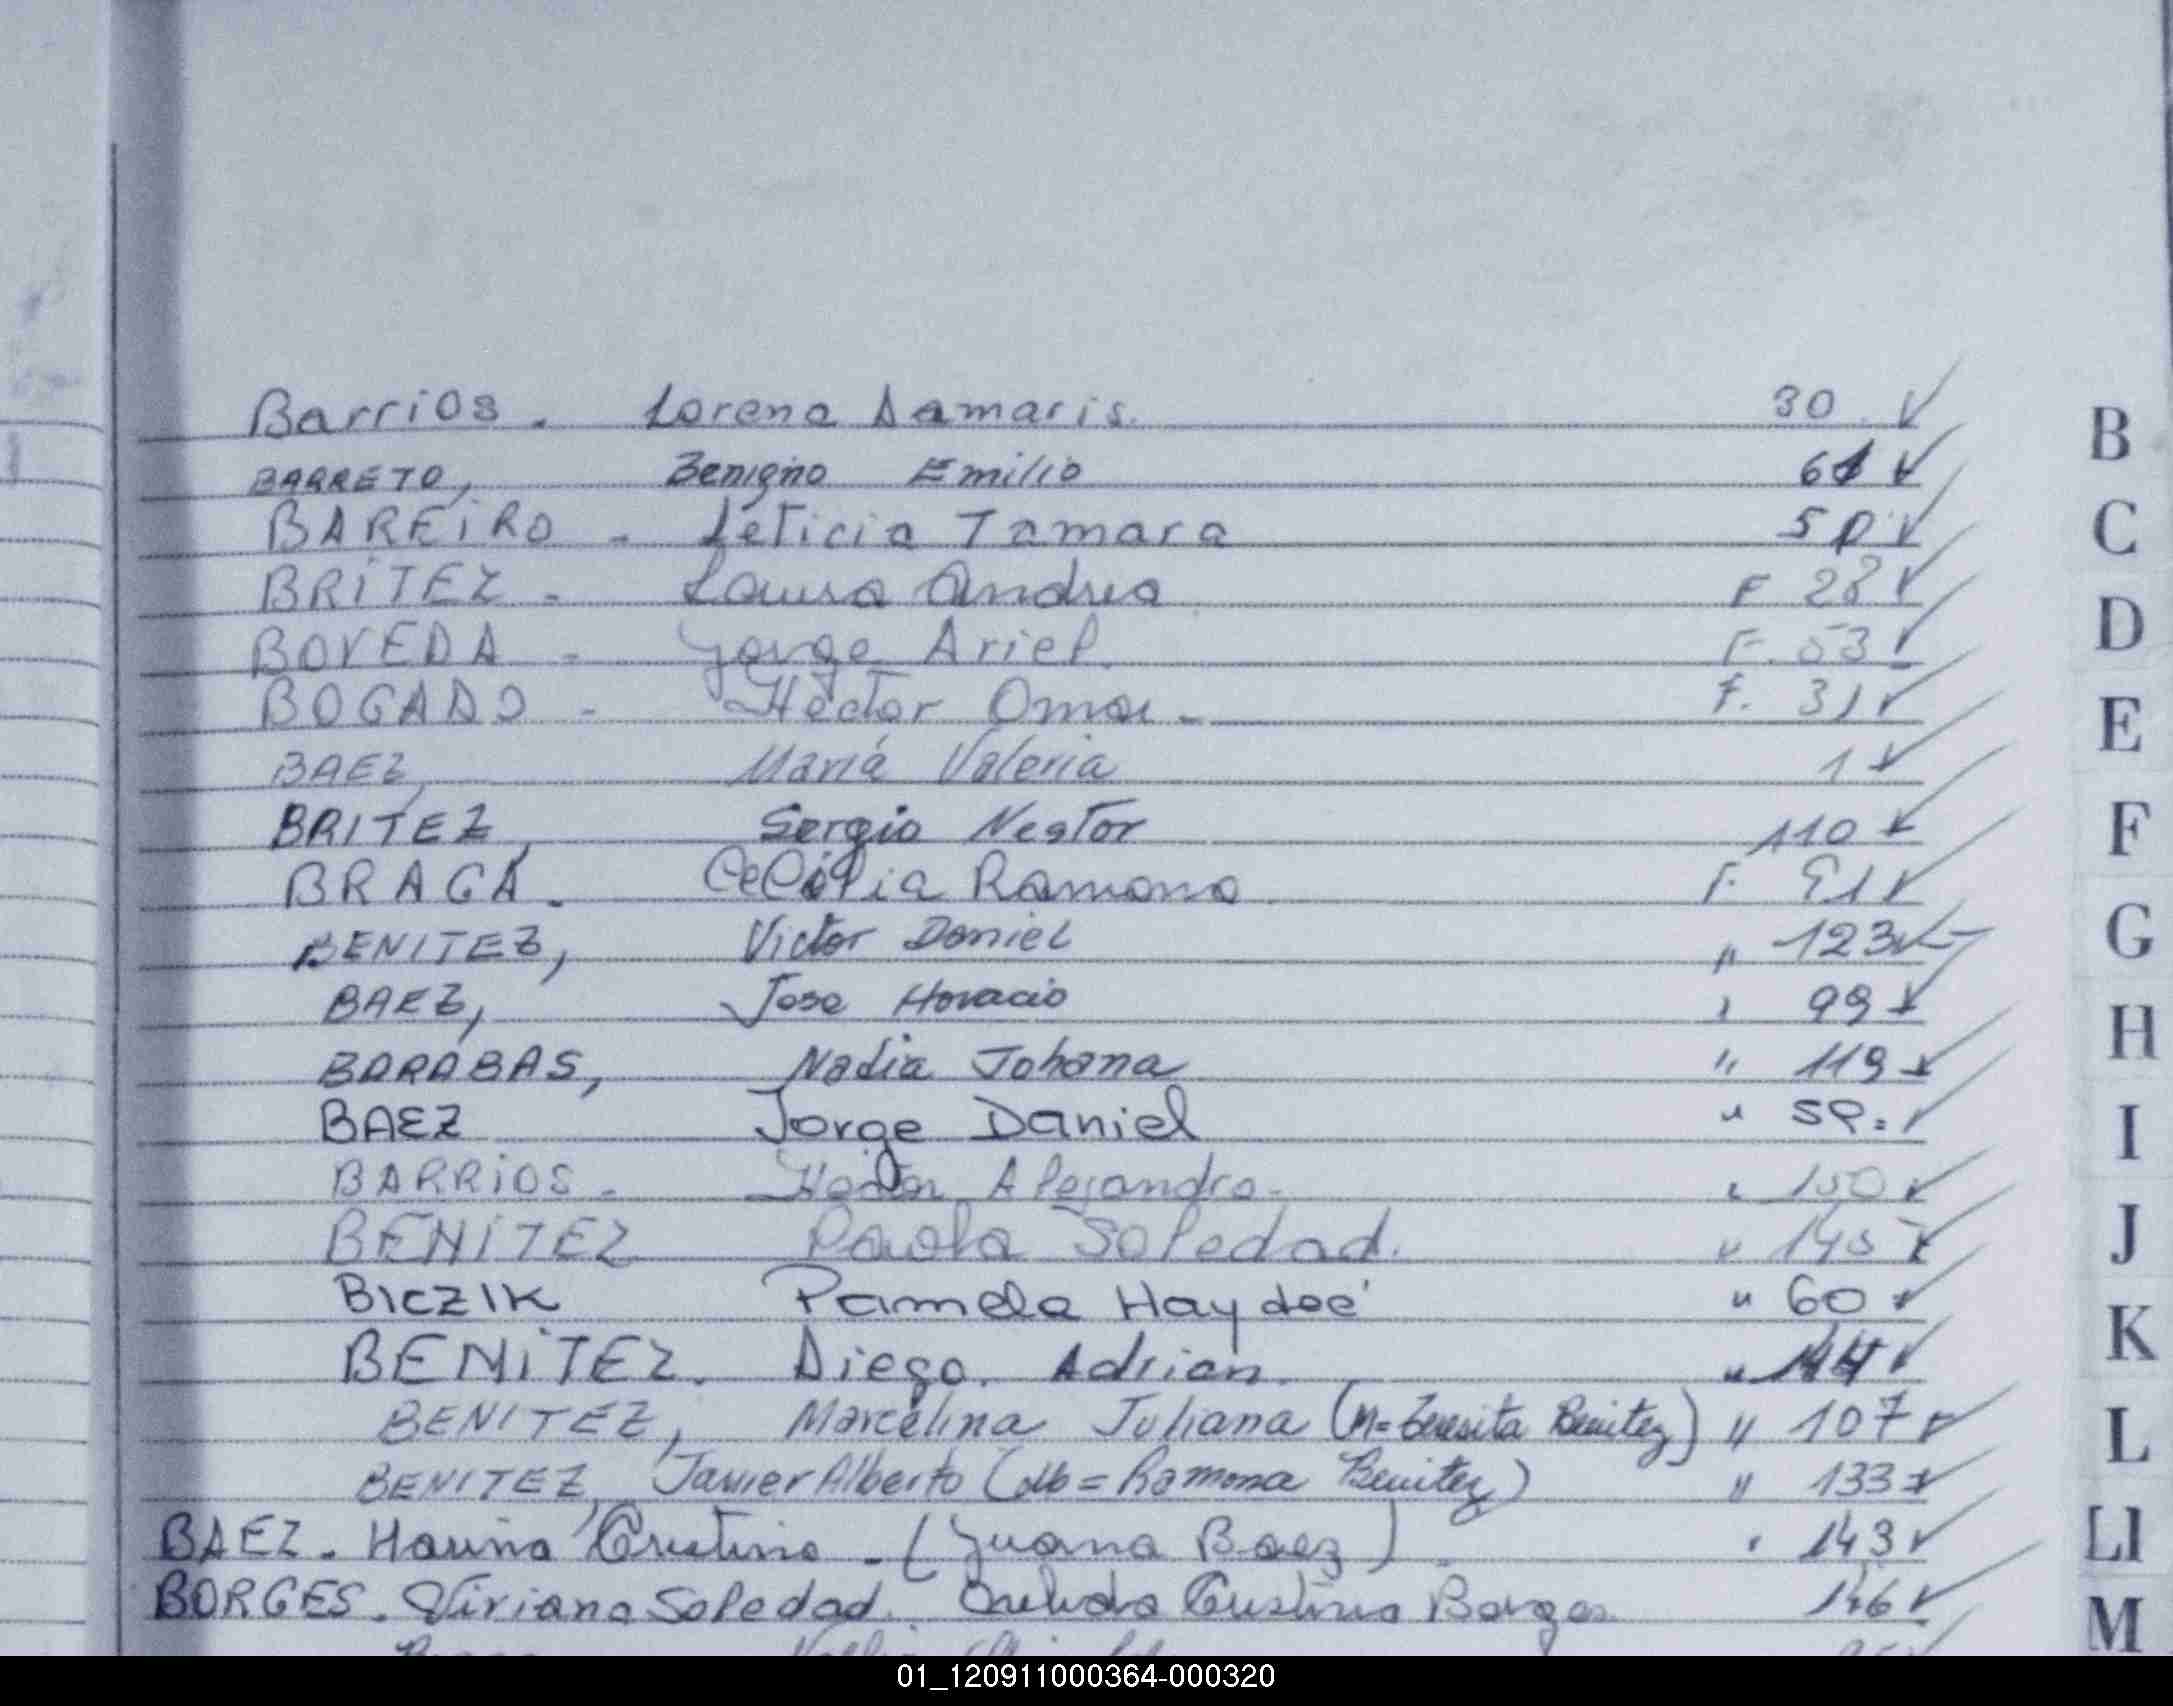 Barrios. Lorena Damaris. 30
BARRETO, Benigno Emilio 61
BAREIRO - Leticia Tamara 50
BRITEZ - Laura Andrea F 28
BOVEDA - Jorge Ariel. F. 53
BOGADO - Hector Omar - F. 31
BAEZ, María Valeria 1
BRITEZ, Sergio Nestor 110
BRAGA. Ramona F.
BENITEZ, Victor Daniel " 123
BAEZ, Jose Horacio " 99
BARABAS, Nadia Johana " 119
BAEZ Jorge Daniel "
BARRIOS - Alejandro - " 150
BENITEZ Paola Soledad. "
BICZIK Pamela Haydeé " 60
BENITEZ. Diego. Adrian. " 144
BENITEZ, Marcelina Juliana (M=Teresita Benitez) " 107
BENITEZ, Javier Alberto (db = Ramona Benitez) " 133
BAEZ - Cristina - (Juana Baez) " 143
BORGES. Viviana Soledad. Cristina Borges 146
B
C
D
E
F
G
H
I
J
K
L
Ll
M
01_120911000364-000320